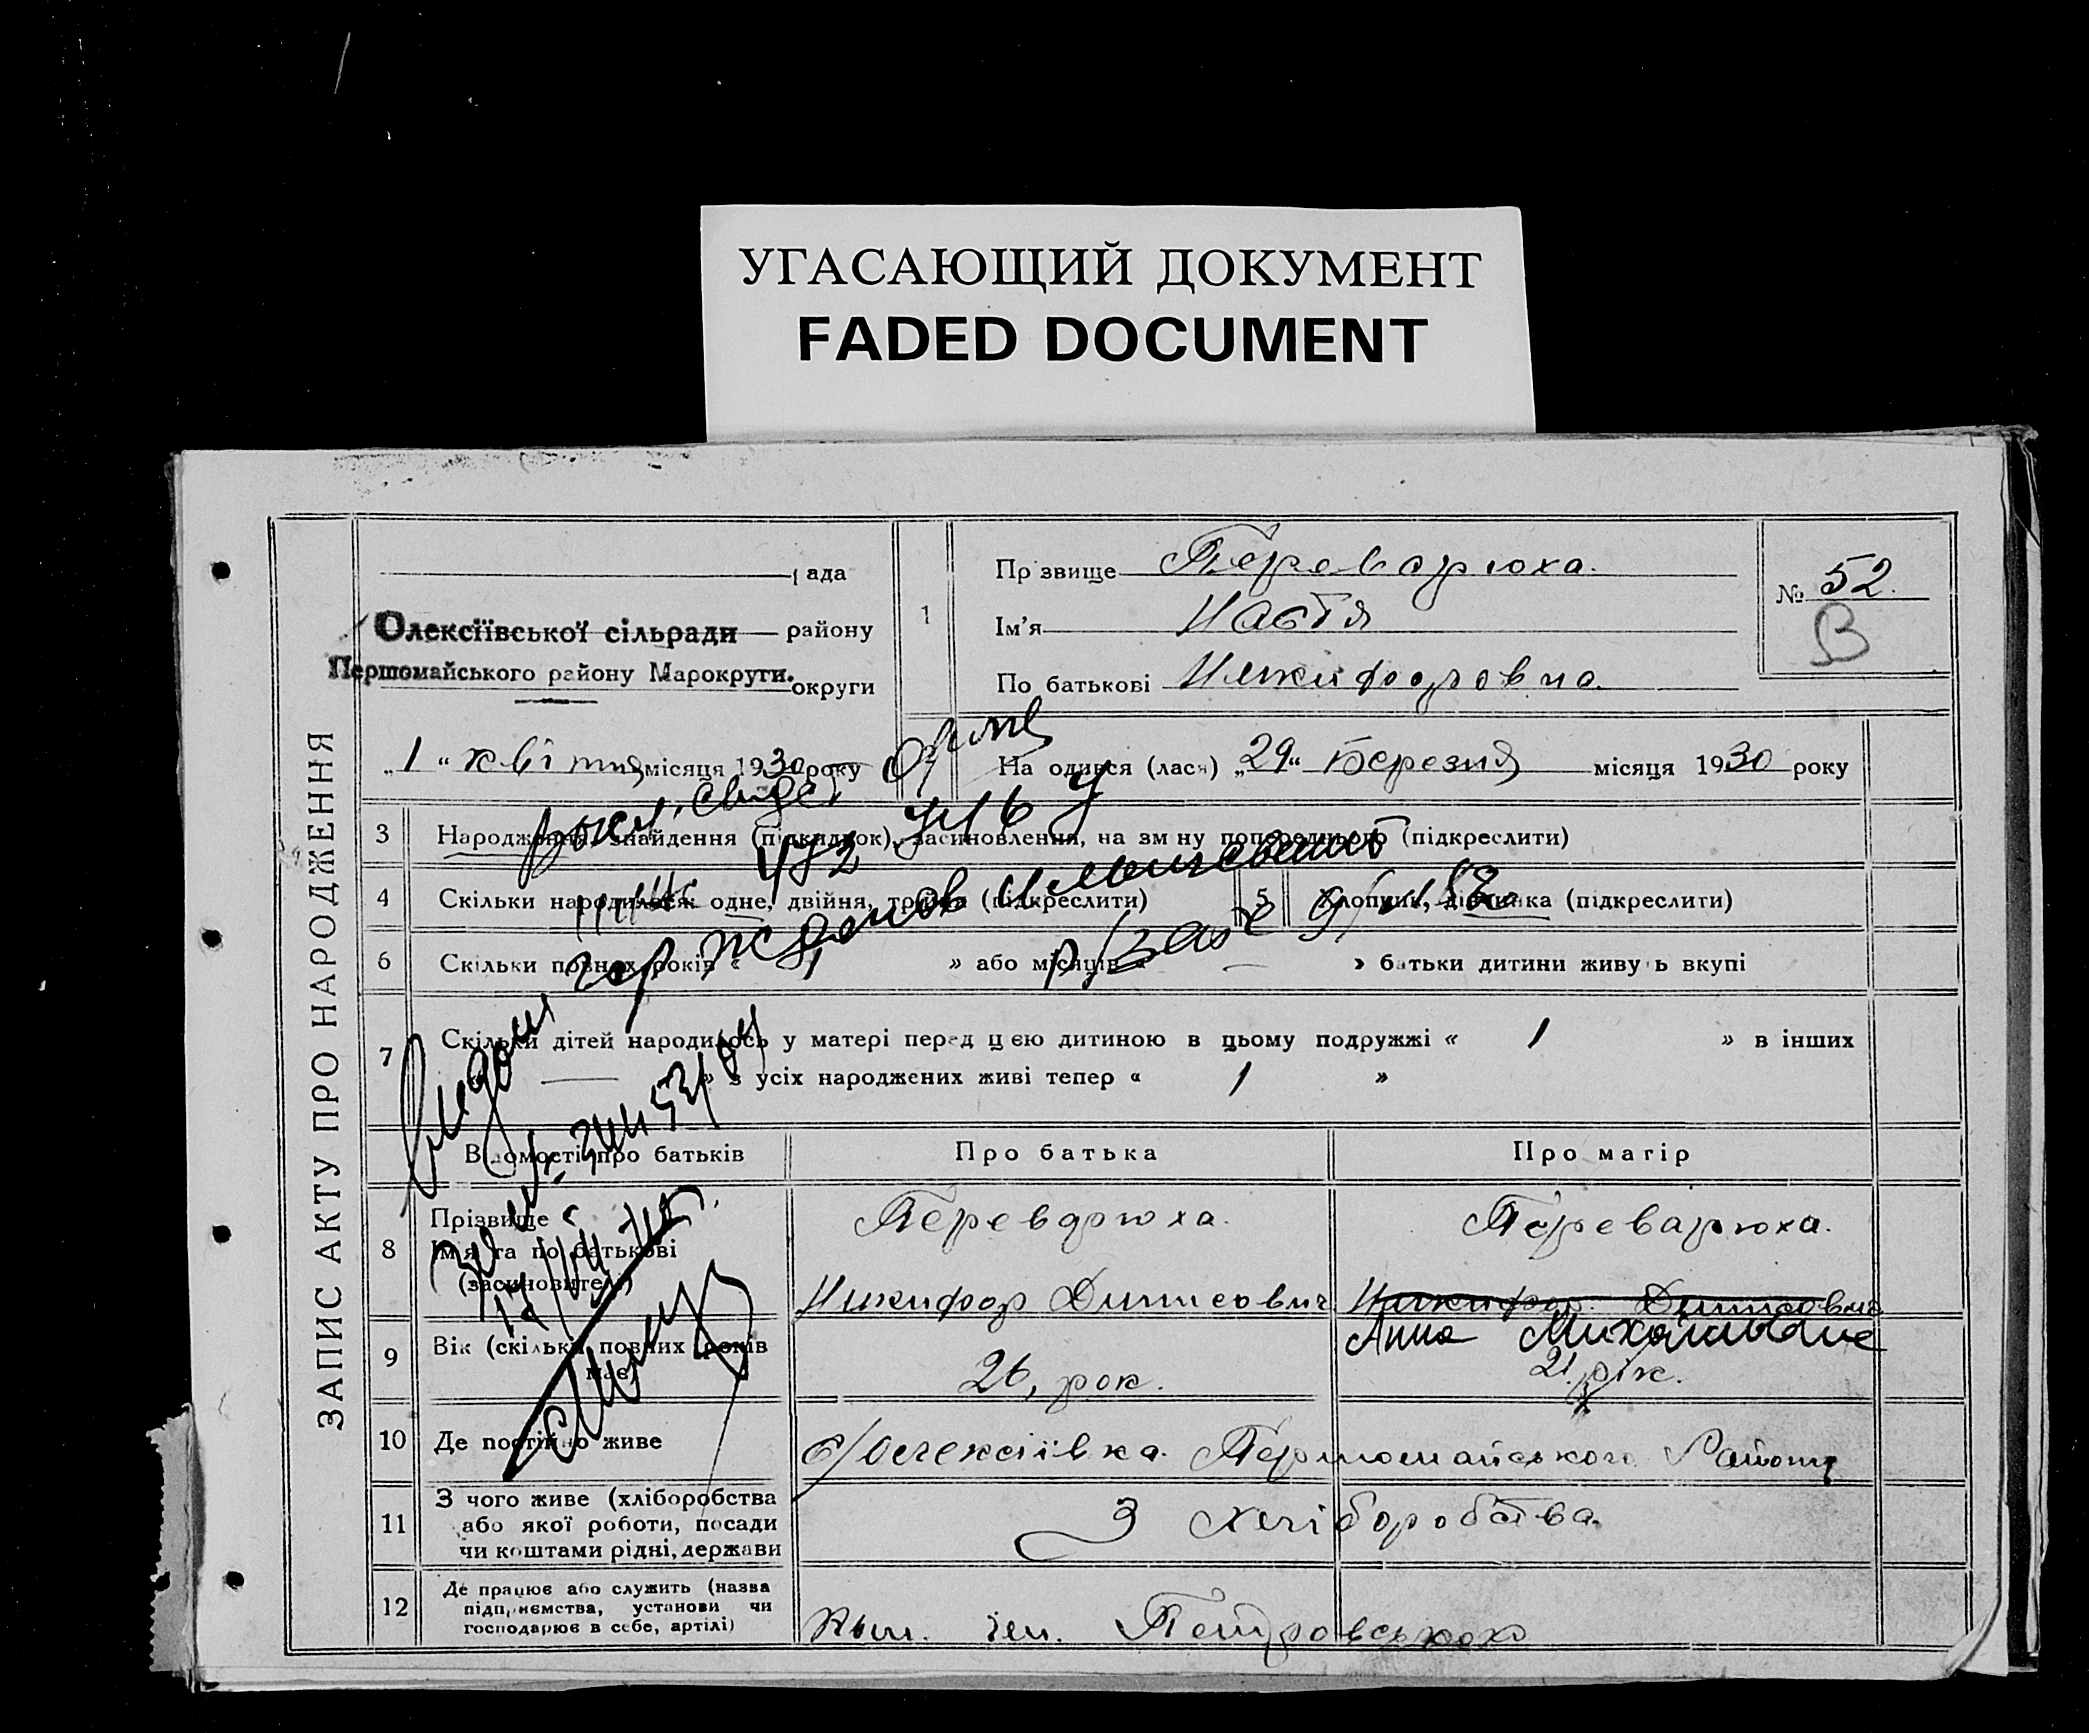 УГАСАЮЩИЙ ДОКУМЕНТ
FADED DOCUMENT
ЗАПИС АКТУ ПРО НАРОДЖЕННЯ
рада
Олексіївської сільради району
Першомайського району Марокруги.
округи
1
Прізвище Переварюха.
Ім'я Настя
По батькові Никифоровна.
№ 52.
В
„1“ квітня місяця 1930 року
На одився (лася) „29“ Березня місяця 1930 року
3 Народження, знайдення (підкидьок), засиновлення, на зм ну попереднього (підкреслити)
4 Скільки народилося: одне, двійня, трійня (підкреслити)
5 Хлопчик, дівчинка (підкреслити)
6 Скільки повних років « » або місяців « — » батьки дитини живуть вкупі
7 Скільки дітей народилось у матері перед цією дитиною в цьому подружжі « 1 » в інших
« — » з усіх народжених живі тепер « 1 »
Відомості про батьків
Про батька
Про матір
8 Прізвище
Ім'я та по батькові
(засиновителі)
Переварюха.
Никифор Динисович
Переварюха.
Никифор Динисович
Анна Михайловна
9 Вік (скільки повних років
має)
26, рок.
21. рік.
10 Де постійно живе
с/Олексіївка. Першомайського Району
11 З чого живе (хліборобства
або якої роботи, посади
чи коштами рідні, держави
З Хліборобства.
12 Де працює або служить (назва
підприємства, установи чи
господарює в себе, артілі)
ім. Петровського